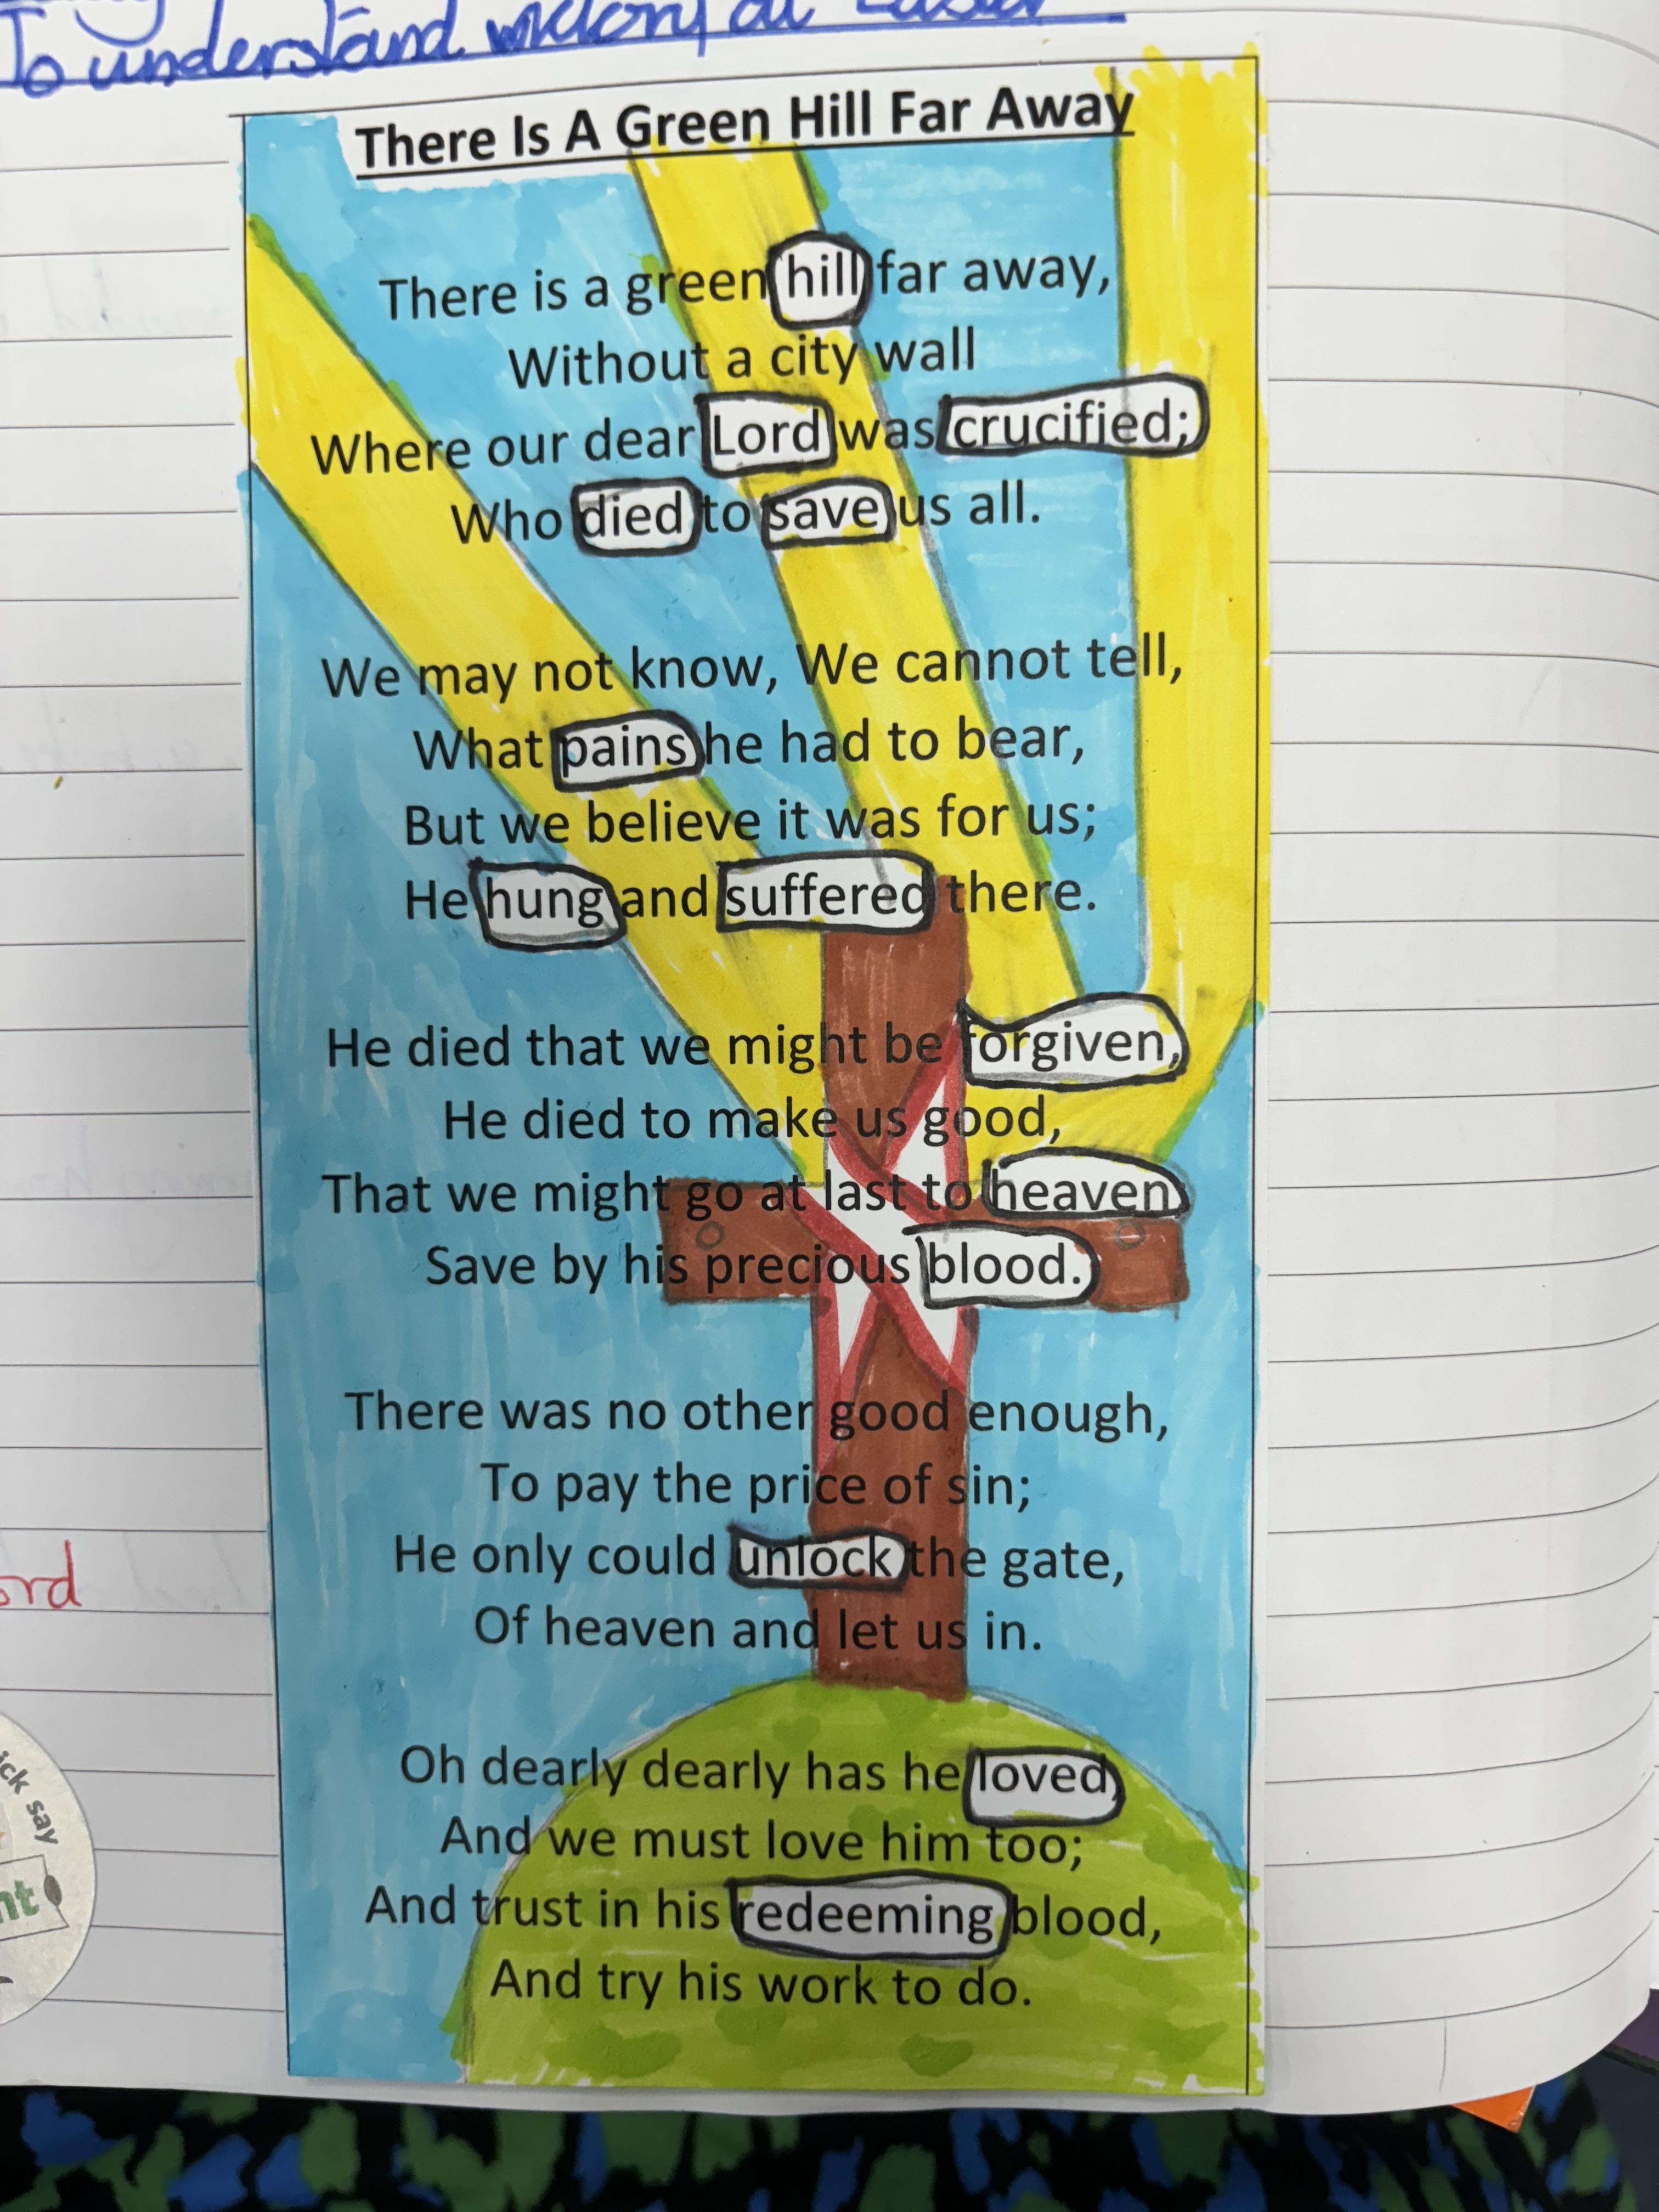 To understand victory at Easter
There Is A Green Hill Far Away
There is a green hill far away,
Without a city wall
Where our dear Lord was crucified;
Who died to save us all.
We may not know, We cannot tell,
What pains he had to bear,
But we believe it was for us;
He hung and suffered there.
He died that we might be forgiven,
He died to make us good,
That we might go at last to heaven,
Save by his precious blood.
There was no other good enough,
To pay the price of sin;
He only could unlock the gate,
Of heaven and let us in.
Oh dearly dearly has he loved,
And we must love him too;
And trust in his redeeming blood,
And try his work to do.
ord
ick say
nt